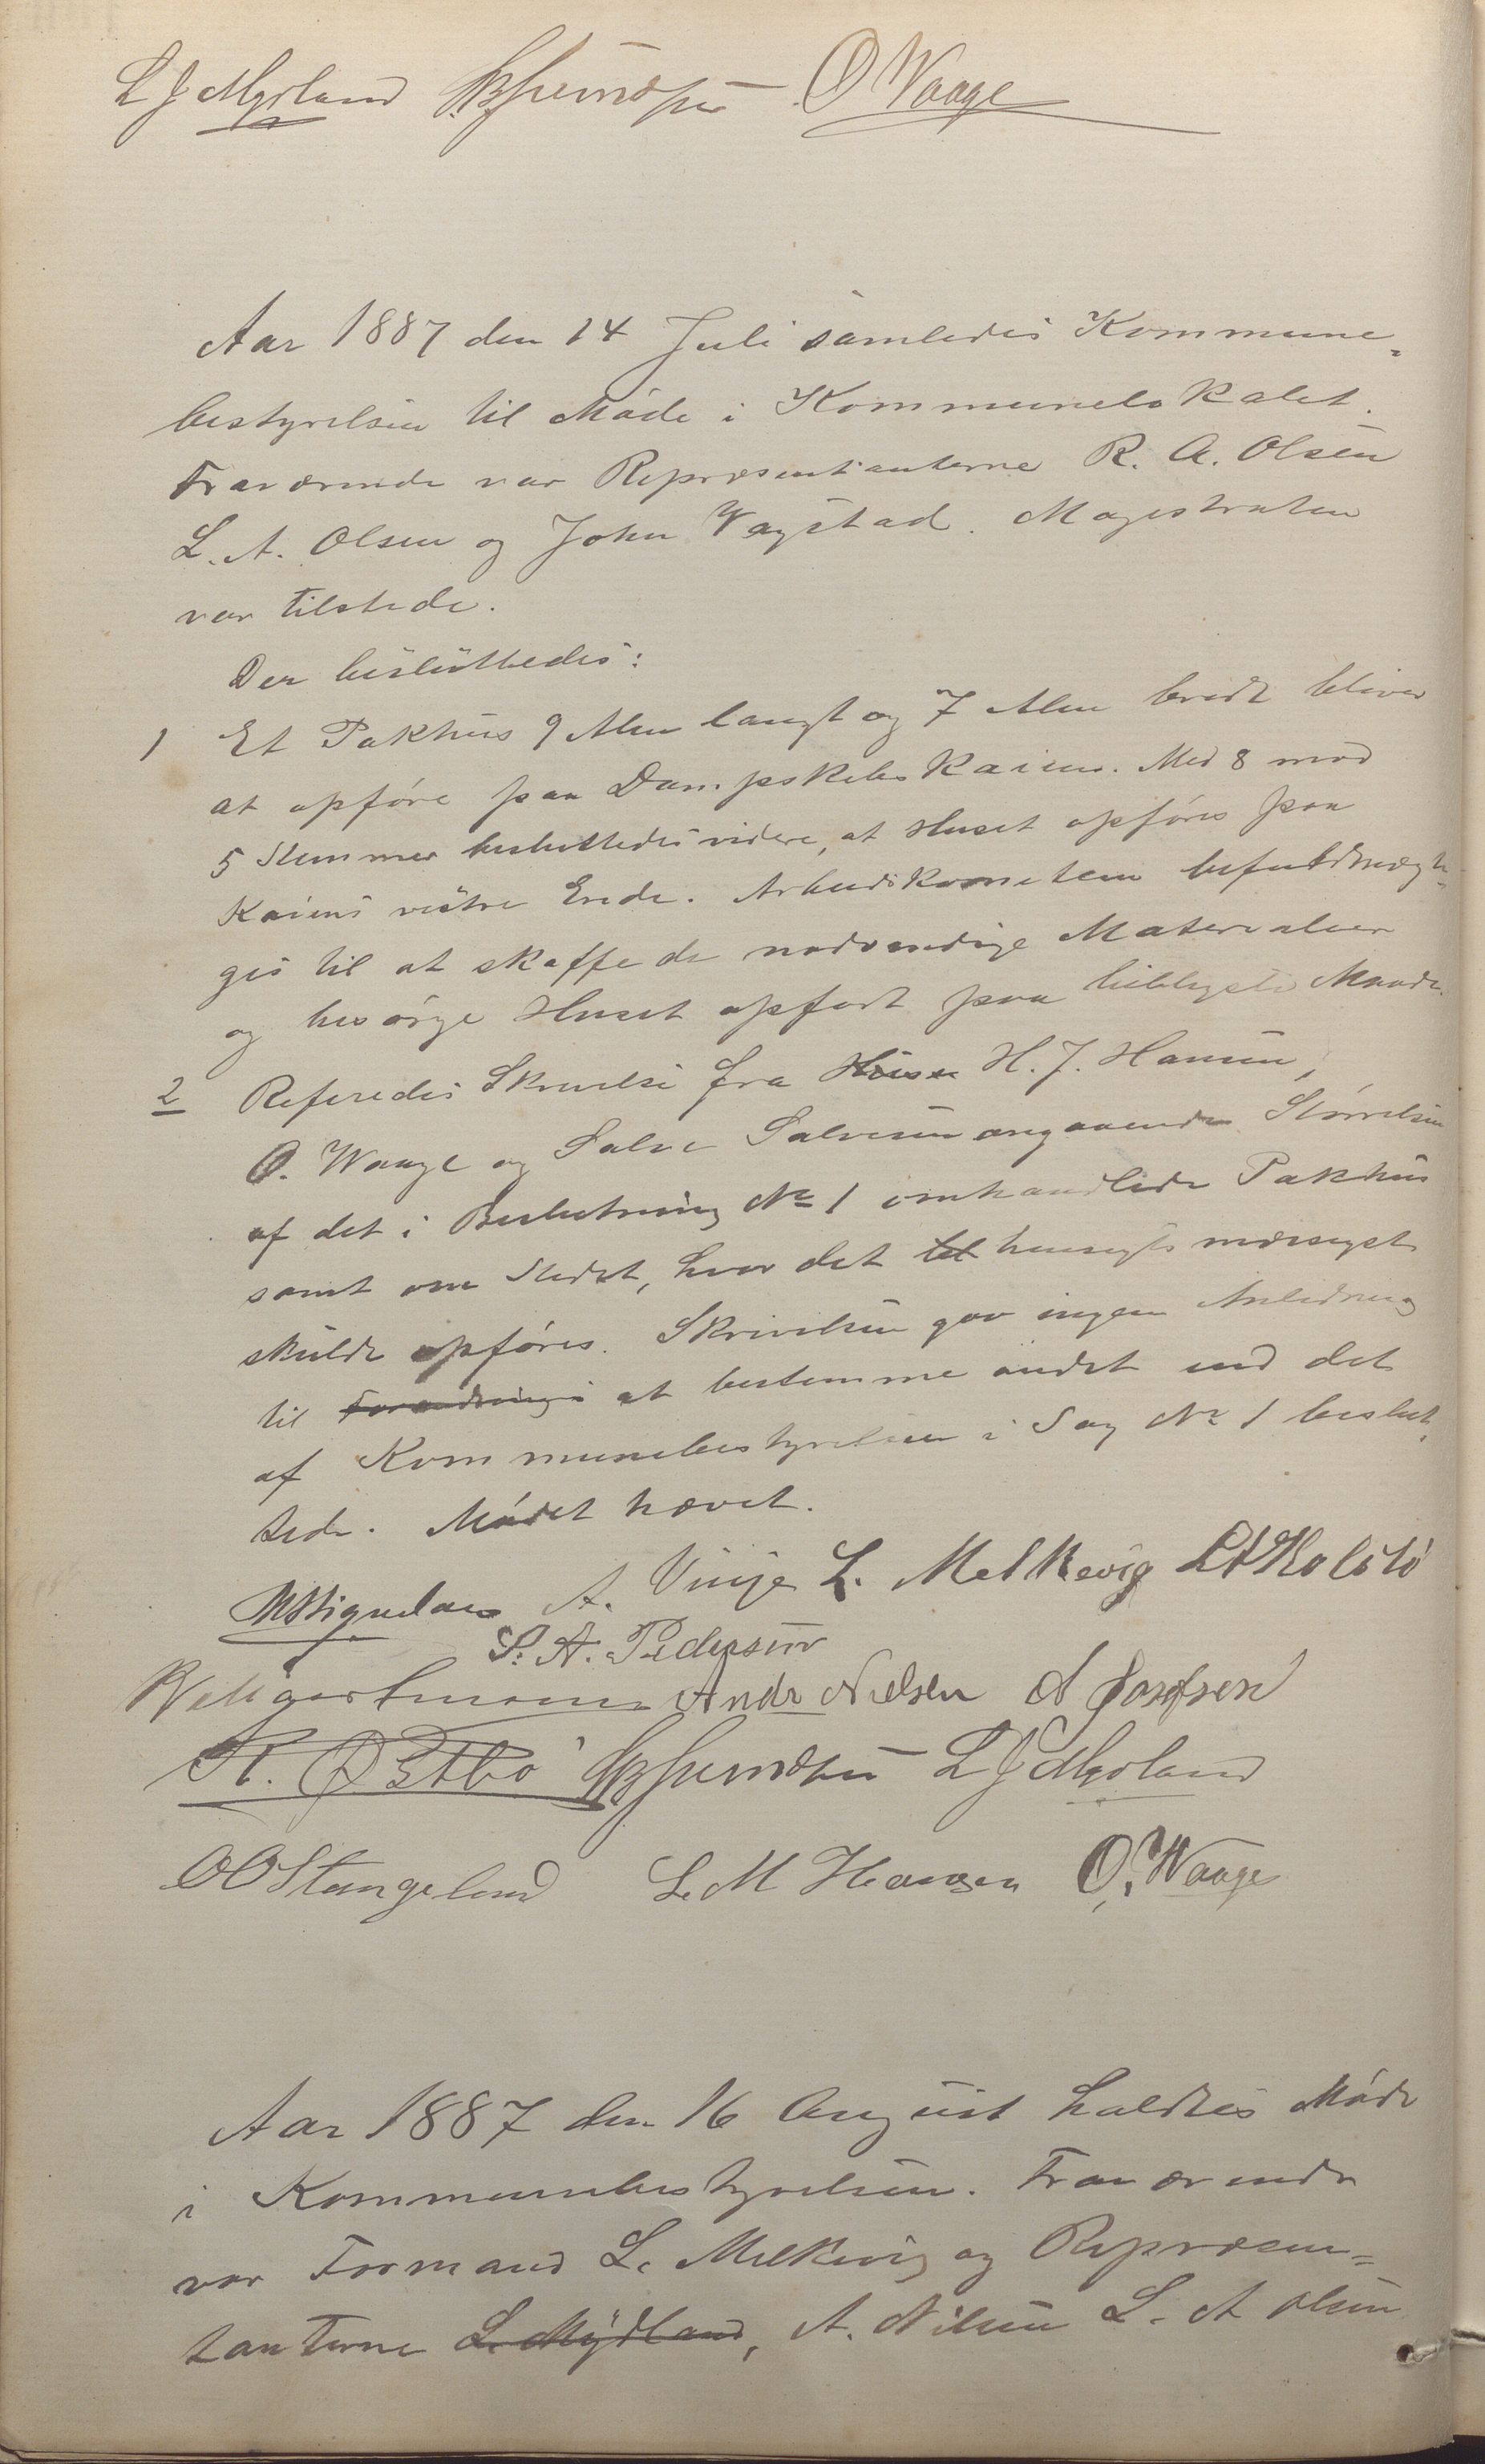 L J Mydland O Waage
Aar 1887 den 14 Juli samledes Kommune-
bestyrelsen til Møde i Kommunelokalet.
Fraværende var Repræsentanterne R. A. Olsen
L. A. Olsen og John Vagstad. Magistraten
var tilstede.
Der besluttedes:
1 Et Pakhus 9 Alen langt og 7 Alen bredt bliver
at opføre paa Dampskibskaien. Med 8 mod
5 Stemmer besluttedes videre, at Huset opføres paa
Kaiens vestre Ende. Arbeidskomiteen befuldmæg-
ges til at skaffe de nødvendige Materialier
og besørge Huset opført paa billigste Maade.
2 Referedes Skrivelse fra H. J. Hansen,
O. Waage og Salve Salvesen angaaende Størrelsen
af det i Beslutning No 1 omhandlede Pakhus
samt om Stedet, hvor det hensigtsmæssigst
skulde opføres. Skrivelsen gav ingen Anledning
til at bestemme andet end det
af Kommunebestyrelsen i Sag No 1 beslut-
tede. Mødet hævet.
A. Vinje L. Melkevig L A Kolstø
S. A. Pedersen
Andr Nielsen A Josefsen
K. Østbø L J Mydland
O O Stangeland L. M Hansen O, Waage
Aar 1887 den 16 August holdtes Møde
i Kommunebestyrelsen. Fraværende
var Formand L. Melkevig og Repræsen-
tanterne L. Mydland, A. Nilsen L. A Olsen